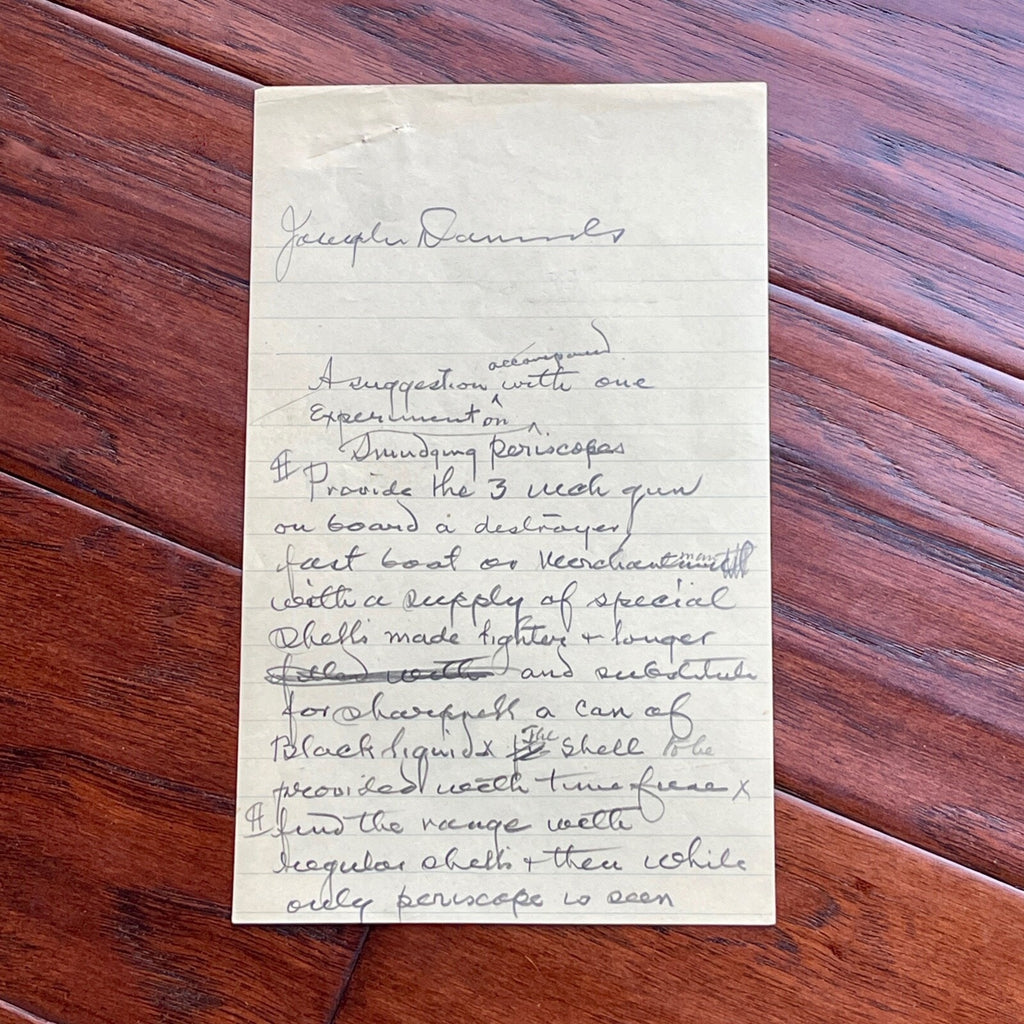 Joseph Daniels
accompanied
A suggestion with one
Experiment on
Smudging periscopes
Provide the 3 inch gun
on board a destroyer
fast boat or Merchantman
with a supply of special
Shells made lighter + longer
filled with and substitute
for sharppell a can of
Black liquid x The Shell to be
provided with time fuse x
find the range with
regular shells + then while
only periscope is seen